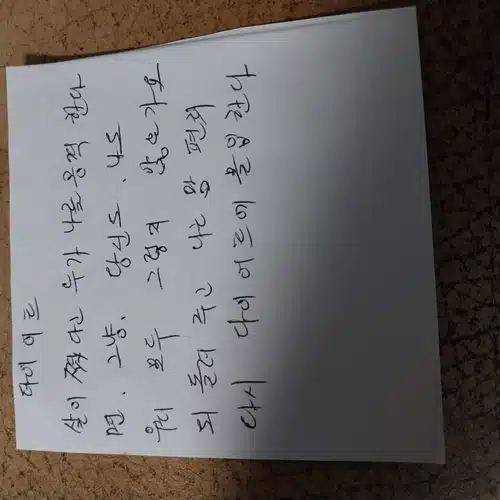 다이어트
살이 쪘다고 누가 나를 공격 한다
면. 그냥. 당신도. 나도
우리 모두 그렇지 않은가요
되 돌려 주고 나는 맘 편히
다시 다이어트에 몰입 한다